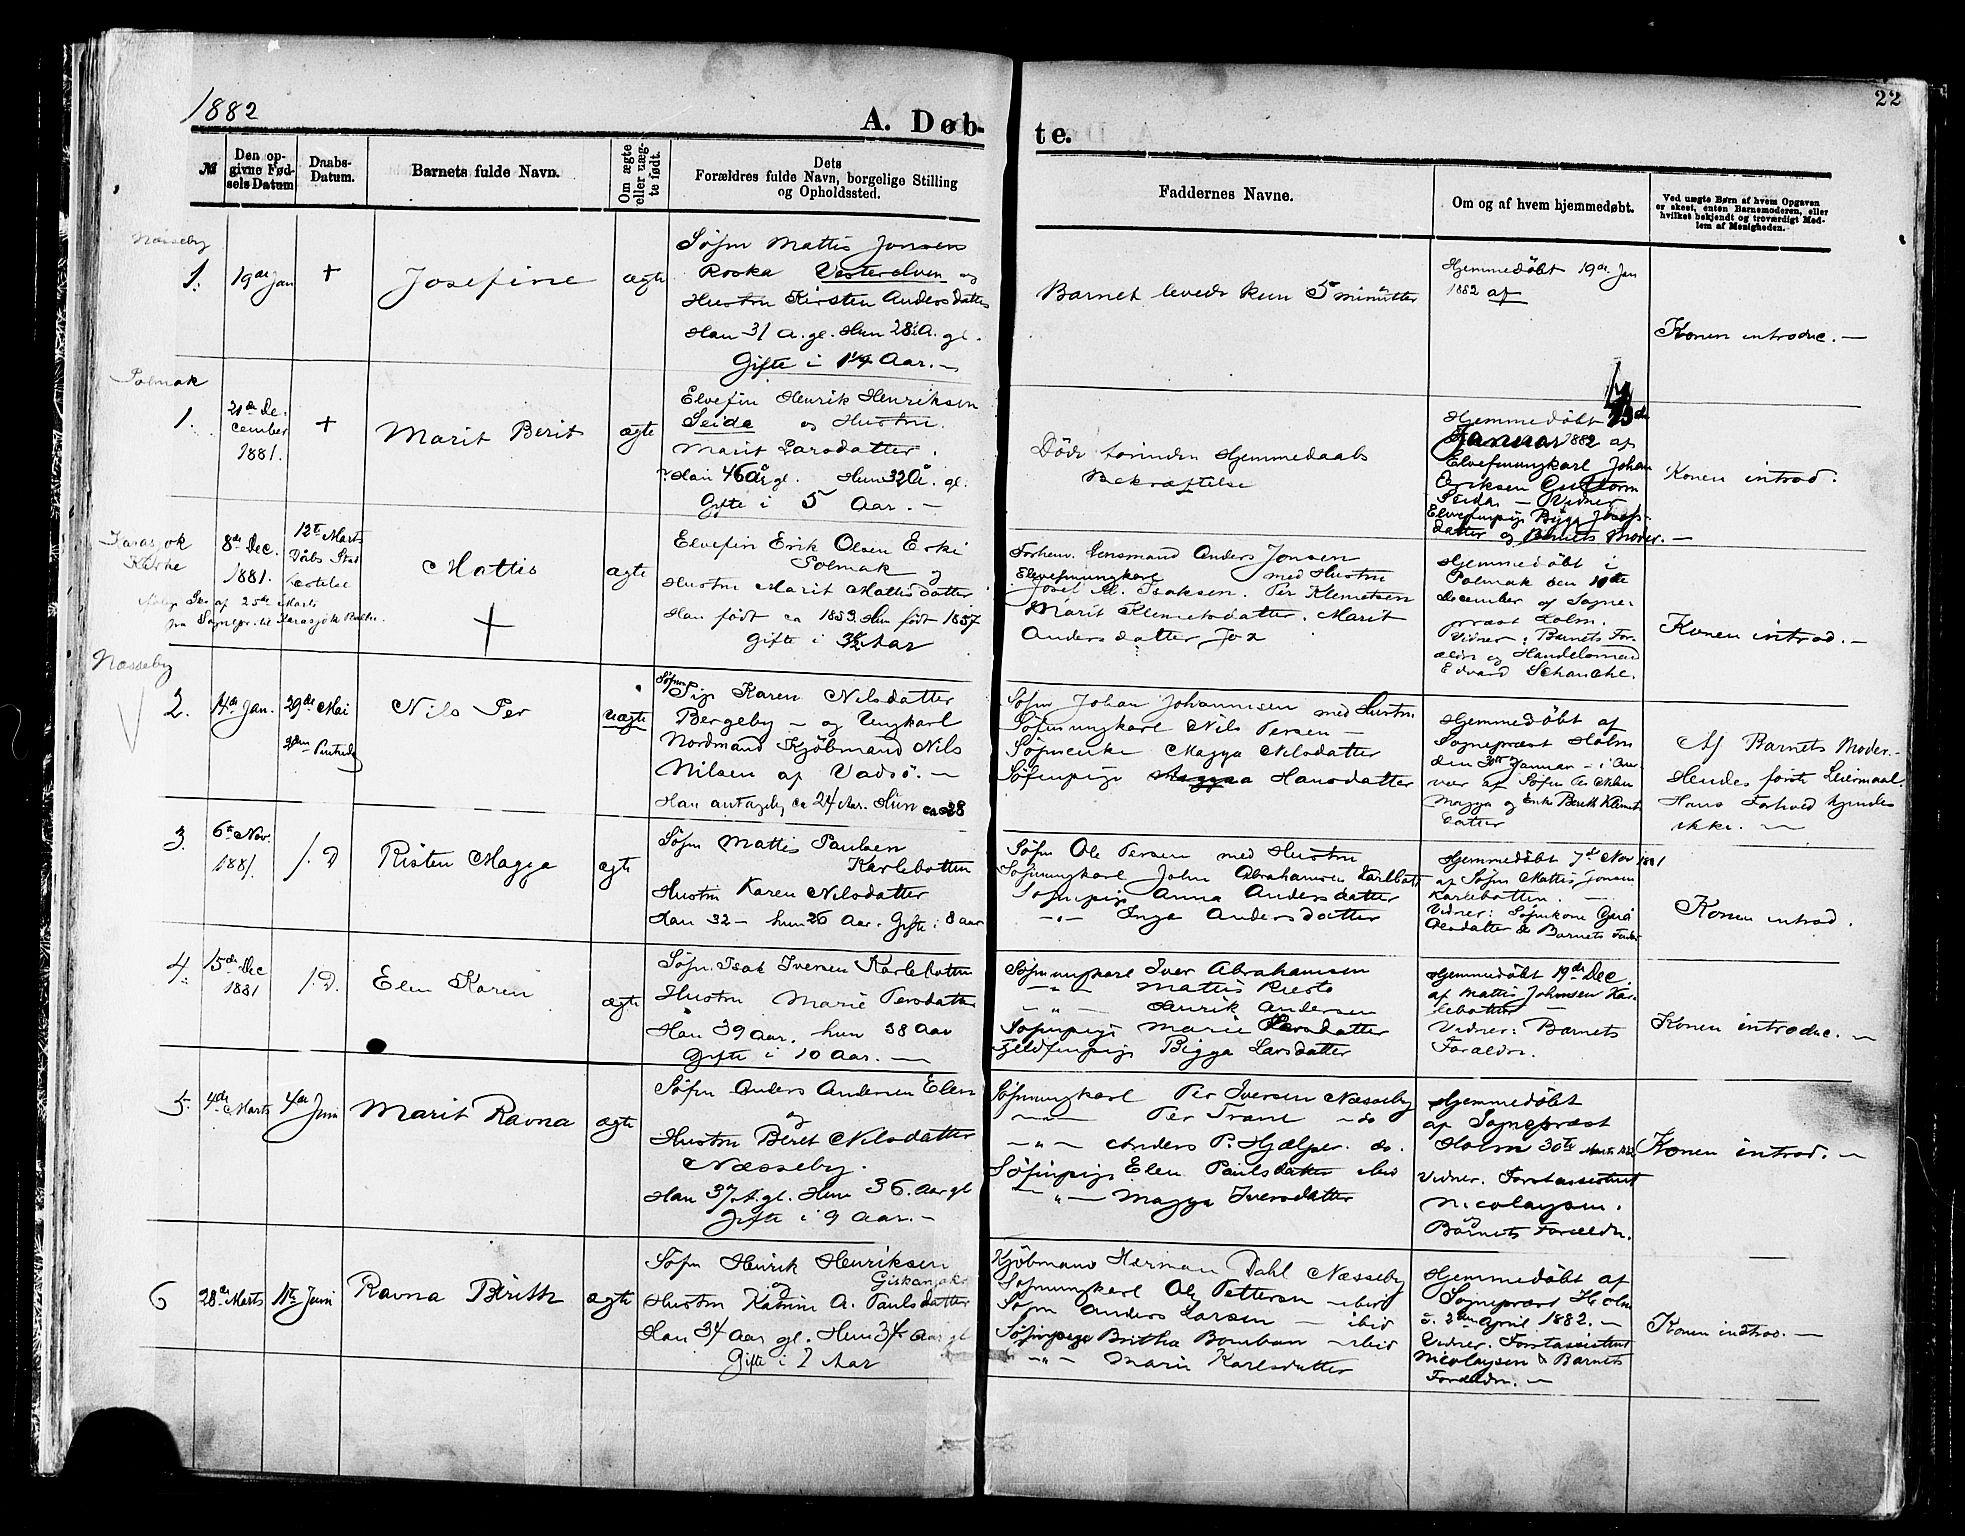 1882
A. Døb-
te.
22
№
Den op-
givne Fød-
sels Datum
Daabs-
Datum.
Barnets fulde Navn.
Om ægte
eller uæg-
te født.
Dets
Forældres fulde Navn, borgelige Stilling
og Opholdssted.
Faddernes Navne.
Om og af hvem hjemmedøbt.
Ved uægte Børn af hvem Opgaven
er skeet, enten Barnemoderen, eller
hvilket bekjendt og troværdigt Med-
lem af Menigheden.
Næsseby
1.
19de Jan
+
Josefine
ægte
Søfin Mattis Jonsen
Roska Vesterelven og
Hustru Kirsten Andersdatter
Han 31 A. gl. Hun 28 A. gl.
Gifte i Aar. —
Barnet levede kun 5 minutter
Hjemmedøbt 19de Jan
1882 af
Konen introduc. —
Polmak
1.
21de De-
cember
1881.
+
Marit Berit
ægte
Elvefin Henrik Henriksen
Seida og Hustru
Marit Larsdatter.
Han 46 Aar gl. Hun 32 A. gl.
Gifte i 5 Aar. —
Døde forinden Hjemmedaabs
Bekræftelse
Hjemmedøbt
Januar 1882 af
Elvefinungkarl Johan
Eriksen Guttorm
Seida — Vidner
Elvefinpige Bigga Josefs-
datter og Barnets Moder. —
Konen introd.
Karasjok
Kirke
8de Dec.
1881.
12te Marts
Mattis
+
ægte
Elvefin Erik Olsen Erki
Polmak og
Hustru Marit Mattisdatter
Han født ca 1853. Hun født 1857
Gifte i Aar
Forhenv. Lensmand Anders Jonsen
Elvefinungkarl med Hustru
Josef M. Isaksen. Per Klemetsen
Marit Klemetsdatter. Marit
Andersdatter
Hjemmedøbt i
Polmak den
December af Sogne-
præst Holm.
Vidner: Barnets For-
ældre og Handelsmand
Edvard Schanche.
Konen introd. —
Næsseby
2.
14de Jan.
29de Mai
Nils Per
uægte
Søfin
Pige Karen Nilsdatter
Bergeby — og Ungkarl
Nordmand Kjøbmand Nils
Nilsen af Vadsø. —
Han antagelig ca 24 Aar. Hun ca 28
Søfin Johan Johannesen med Hustru
Søfinungkarl Nils Persen —
Søfinenke Magga Nilsdatter
Søfinpige Hansdatter
Hjemmedøbt af
Sognepræst Holm
den Januar —
Af Barnets Moder. —
Hendes første Leiermaal
Hans Forhold kjendes
ikke. —
3.
6te Nov.
1881.
1. D
Risten Magga
ægte
Søfin Mattis Paulsen
Karlebotten
Hustru Karen Nilsdatter
Han 32 — hun 26 Aar. Gifte i 8 aar
Søfin Ole Persen med Hustru
Søfinungkarl John Abrahamsen Karlbott
Søfinpige Anna Andersdatter
—"— Inga Andersdatter
Hjemmedøbt 7de Nov 1881
af Søfin Mattis Jonsen
Karlebotten. —
Vidner: Søfinkone
Konen introd.
4.
15de Dec
1881
1. D.
Elen Karen
ægte
Søfin Isak Iversen Karlebotten
Hustru Marie Persdatter
Han 39 Aar. hun 38 Aar
Gifte i 10 Aar. —
Søfinungkarl Iver Abrahamsen
—"— Mattis
—"— Henrik Andersen
Søfinpige Marie Larsdatter
Fjeldfinpige Bigga Larsdatter
Hjemmedøbt 19de Dec.
af Mattis Johnsen Kar-
lebotten —
Vidner: Barnets
Forældre.
Konen introduc. —
5.
4de Marts
4de Juni
Marit Ravna
ægte
Søfin Anders Andersen
og
Hustru Beret Nilsdatter
Næsseby.
Han 37 A. gl. Hun 36. Aar gl
Gifte i 9 Aar. —
Søfinungkarl Per Iversen Næsseby
—"— Per Trane do
—"— Anders P. Hjælper. do.
Søfinpige Elen Paulsdatter ibid
—"— Magga Iversdatter
Hjemmedøbt
af Sognepræst
Holm 30te
Vidner. Forstassistent
Nicolaysen.
og
Barnets Forældre.
Konen introd. —
6
28de Marts
11te Juni
Ravna Birith
ægte
Søfin Henrik Henriksen
og
Hustru Katrine A. Paulsdatter
Han 34 Aar gl. Hun 34 Aar gl
Gifte i 2 Aar
Kjøbmand Herman Dahl Næsseby
Søfinungkarl Ole Pettersen ibid
Søfin Anders Larsen — ibid
Søfinpige Britha ibid
—"— Marie Karlsdatter
Hjemmedøbt af
Sognepræst Holm
d. 2den April 1882. —
Vidner. Forstassistent
Nicolaysen & Barnets
Forældre. —
Konen introd. —